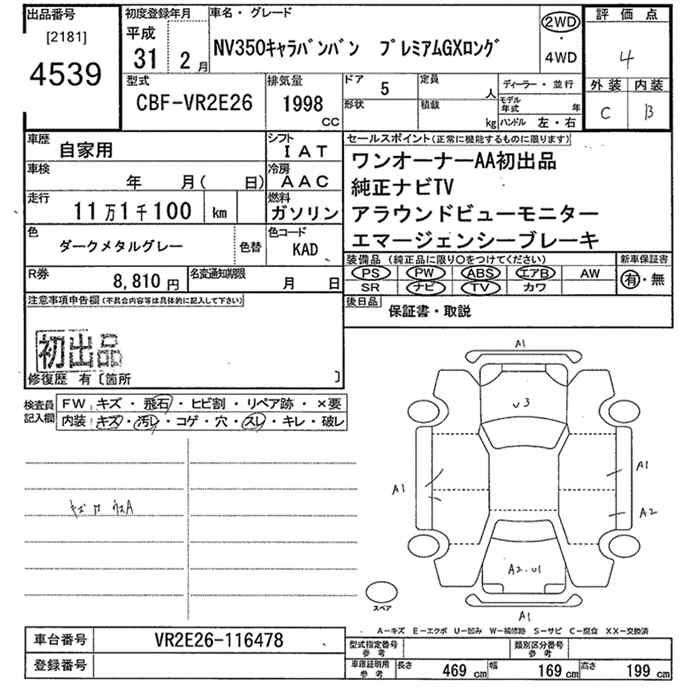 出品番号
[2181]
4539
初度登録年月
平成
31 2月
車名・グレード
NV350キャラバンバン プレミアムGXロング
2WD
・
4WD
評価点
4
外装 内装
C B
型式
CBF-VR2E26
排気量
1998
CC
ドア 5
形状
定員 人
積載 kg
ディーラー・並行
モデル年式 年
ハンドル 左・右
車歴
自家用
シフト
IAT
車検
年 月( 日)
冷房
AAC
走行
11万1千100 km
燃料
ガソリン
色
ダークメタルグレー
色替
色コード
KAD
R券
8,810円
名変通知期限
月 日
セールスポイント(正常に機能するものに限ります)
ワンオーナーAA初出品
純正ナビTV
アラウンドビューモニター
エマージェンシーブレーキ
装備品(純正品に限り○をつけてください)
新車保証書
PS PW ABS エアB AW
SR ナビ TV カワ
有・無
後日品
保証書・取説
注意事項申告欄(不具合内容等は具体的に記入して下さい)
初出品
修復歴 有〔箇所 〕
検査員
記入欄
FW キズ・飛石・ヒビ割・リペア跡・×要
内装 キズ・汚レ・コゲ・穴・スレ・キレ・破レ
A1
v3
A1
A1
A2
A2.U1
A1
スペア
A−キズ E−エクボ U−凹み W−補修跡 S−サビ C−腐食 XX−交換済
車台番号
VR2E26-116478
登録番号
型式指定番号
参考
類別区分番号
参考
車庫証明用
参考
長さ 469 cm 幅 169 cm 高さ 199 cm